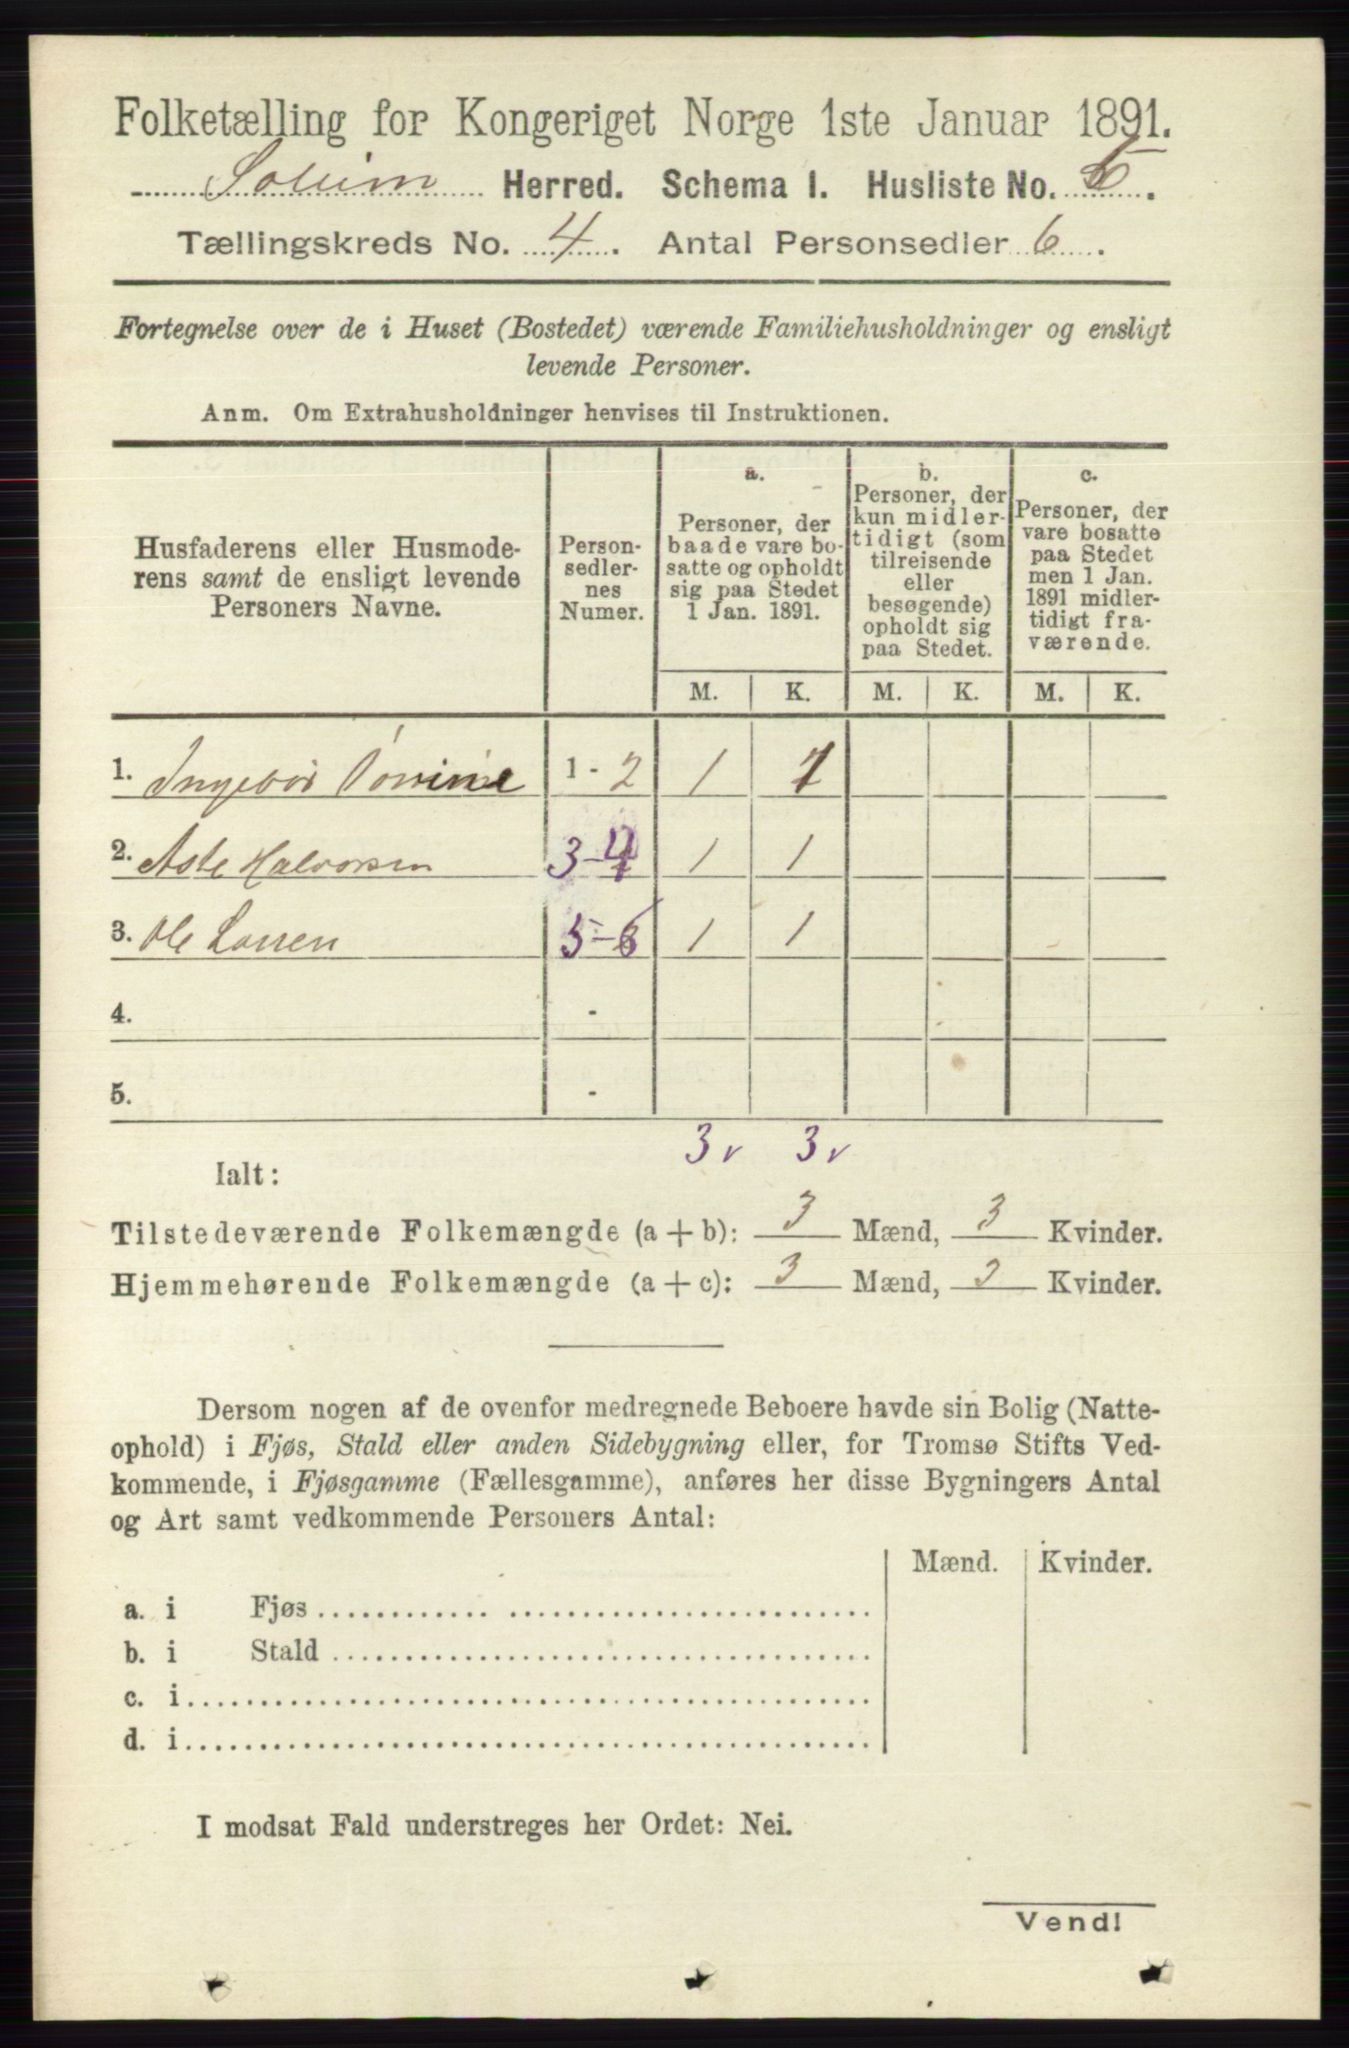 Folketælling for Kongeriget Norge 1ste Januar 1891.
Solum Herred. Schema I. Husliste No. 5.
Tællingskreds No. 4. Antal Personsedler 6.
Fortegnelse over de i Huset (Bostedet) værende Familiehusholdninger og ensligt
levende Personer.
Anm. Om Extrahusholdninger henvises til Instruktionen.
Husfaderens eller Husmode-
rens samt de ensligt levende
Personers Navne.
Person-
sedler-
nes
Numer.
a.
Personer, der
baade vare bo-
satte og opholdt
sig paa Stedet
1 Jan. 1891.
b.
Personer, der
kun midler-
tidigt (som
tilreisende
eller
besøgende)
opholdt sig
paa Stedet.
c.
Personer, der
vare bosatte
paa Stedet
men 1 Jan.
1891 midler-
tidigt fra-
værende.
M. K. M. K. M. K.
1. Ingebør 1 - 2 1 1
2. Aste Halvorsen 3-4 1 1
3. Ole Larsen 5-6 1 1
4. -
5. -
3 v 3 v
Ialt:
Tilstedeværende Folkemængde (a + b): 3 Mænd, 3 Kvinder.
Hjemmehørende Folkemængde (a + c): 3 Mænd, 3 Kvinder.
Dersom nogen af de ovenfor medregnede Beboere havde sin Bolig (Natte-
ophold) i Fjøs, Stald eller anden Sidebygning eller, for Tromsø Stifts Ved-
kommende, i Fjøsgamme (Fællesgamme), anføres her disse Bygningers Antal
og Art samt vedkommende Personers Antal:
Mænd. Kvinder.
a. i Fjøs
b. i Stald
c. i
d. i
I modsat Fald understreges her Ordet: Nei.
Vend!